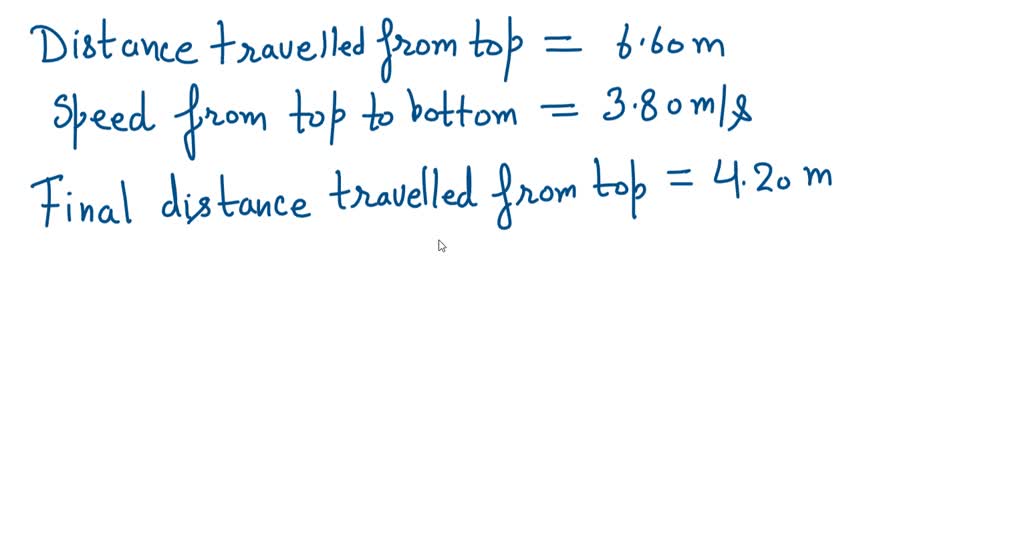 Distance travelled from top = 6.60m
Speed from top to bottom = 3.80 m/s
Final distance travelled from top = 4.20 m